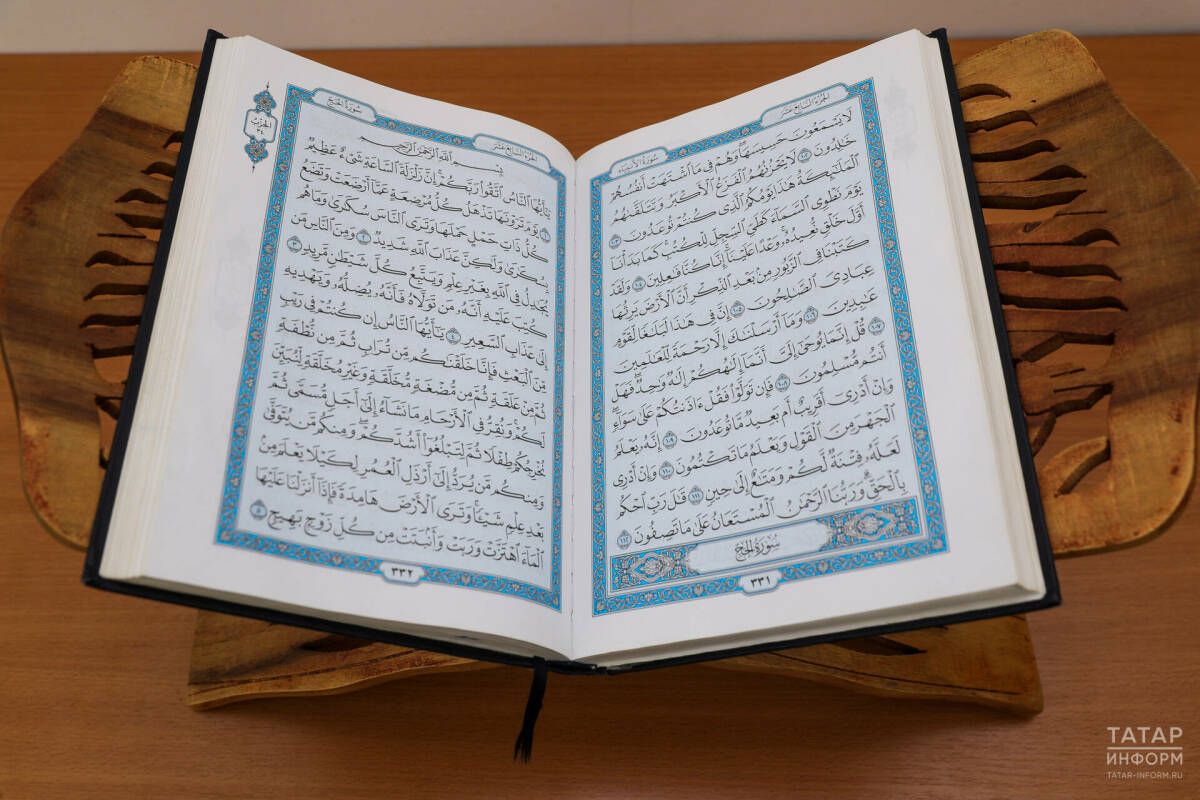 الجُزْءُ السَّابِعَ عَشَرَ
سُورَةُ الأَنبِيَاء
لَا يَسْمَعُونَ حَسِيسَهَاۖ وَهُمْ فِي مَا ٱشْتَهَتْ أَنفُسُهُمْ
خَٰلِدُونَ ١٠٢ لَا يَحْزُنُهُمُ ٱلْفَزَعُ ٱلْأَكْبَرُ وَتَتَلَقَّىٰهُمُ
ٱلْمَلَٰٓئِكَةُ هَٰذَا يَوْمُكُمُ ٱلَّذِي كُنتُمْ تُوعَدُونَ ١٠٣
يَوْمَ نَطْوِي ٱلسَّمَآءَ كَطَيِّ ٱلسِّجِلِّ لِلْكُتُبِۚ كَمَا بَدَأْنَآ
أَوَّلَ خَلْقٍ نُّعِيدُهُۥۚ وَعْدًا عَلَيْنَآۚ إِنَّا كُنَّا فَٰعِلِينَ ١٠٤ وَلَقَدْ
كَتَبْنَا فِي ٱلزَّبُورِ مِنۢ بَعْدِ ٱلذِّكْرِ أَنَّ ٱلْأَرْضَ يَرِثُهَا
عِبَادِيَ ٱلصَّٰلِحُونَ ١٠٥ إِنَّ فِي هَٰذَا لَبَلَٰغًا لِّقَوْمٍ
عَٰبِدِينَ ١٠٦ وَمَآ أَرْسَلْنَٰكَ إِلَّا رَحْمَةً لِّلْعَٰلَمِينَ ١٠٧
قُلْ إِنَّمَا يُوحَىٰٓ إِلَيَّ أَنَّمَآ إِلَٰهُكُمْ إِلَٰهٌ وَٰحِدٌۖ فَهَلْ
أَنتُم مُّسْلِمُونَ ١٠٨ فَإِن تَوَلَّوْا۟ فَقُلْ ءَاذَنتُكُمْ عَلَىٰ سَوَآءٍۖ
وَإِنْ أَدْرِيٓ أَقَرِيبٌ أَم بَعِيدٌ مَّا تُوعَدُونَ ١٠٩ إِنَّهُۥ يَعْلَمُ
ٱلْجَهْرَ مِنَ ٱلْقَوْلِ وَيَعْلَمُ مَا تَكْتُمُونَ ١١٠ وَإِنْ أَدْرِي
لَعَلَّهُۥ فِتْنَةٌ لَّكُمْ وَمَتَٰعٌ إِلَىٰ حِينٍ ١١١ قَٰلَ رَبِّ ٱحْكُم
بِٱلْحَقِّۗ وَرَبُّنَا ٱلرَّحْمَٰنُ ٱلْمُسْتَعَانُ عَلَىٰ مَا تَصِفُونَ ١١٢
سُورَةُ الحَجِّ
٣٣١
الجُزْءُ السَّابِعَ عَشَرَ
سُورَةُ الحَجِّ
الحِزْبُ ٣٤
بِسْمِ ٱللَّهِ ٱلرَّحْمَٰنِ ٱلرَّحِيمِ
يَٰٓأَيُّهَا ٱلنَّاسُ ٱتَّقُوا۟ رَبَّكُمْۚ إِنَّ زَلْزَلَةَ ٱلسَّاعَةِ شَيْءٌ عَظِيمٌ
١ يَوْمَ تَرَوْنَهَا تَذْهَلُ كُلُّ مُرْضِعَةٍ عَمَّآ أَرْضَعَتْ وَتَضَعُ
كُلُّ ذَاتِ حَمْلٍ حَمْلَهَا وَتَرَى ٱلنَّاسَ سُكَٰرَىٰ وَمَا هُم
بِسُكَٰرَىٰ وَلَٰكِنَّ عَذَابَ ٱللَّهِ شَدِيدٌ ٢ وَمِنَ ٱلنَّاسِ مَن
يُجَٰدِلُ فِي ٱللَّهِ بِغَيْرِ عِلْمٍ وَيَتَّبِعُ كُلَّ شَيْطَٰنٍ مَّرِيدٍ ٣
كُتِبَ عَلَيْهِ أَنَّهُۥ مَن تَوَلَّاهُ فَأَنَّهُۥ يُضِلُّهُۥ وَيَهْدِيهِ
إِلَىٰ عَذَابِ ٱلسَّعِيرِ ٤ يَٰٓأَيُّهَا ٱلنَّاسُ إِن كُنتُمْ فِي رَيْبٍ
مِّنَ ٱلْبَعْثِ فَإِنَّا خَلَقْنَٰكُم مِّن تُرَابٍ ثُمَّ مِن نُّطْفَةٍ
ثُمَّ مِنْ عَلَقَةٍ ثُمَّ مِن مُّضْغَةٍ مُّخَلَّقَةٍ وَغَيْرِ مُخَلَّقَةٍ لِّنُبَيِّنَ
لَكُمْۚ وَنُقِرُّ فِي ٱلْأَرْحَامِ مَا نَشَآءُ إِلَىٰٓ أَجَلٍ مُّسَمًّى ثُمَّ
نُخْرِجُكُمْ طِفْلًا ثُمَّ لِتَبْلُغُوٓا۟ أَشُدَّكُمْۖ وَمِنكُم مَّن يُتَوَفَّىٰ
وَمِنكُم مَّن يُرَدُّ إِلَىٰٓ أَرْذَلِ ٱلْعُمُرِ لِكَيْلَا يَعْلَمَ مِنۢ
بَعْدِ عِلْمٍ شَيْـًٔاۚ وَتَرَى ٱلْأَرْضَ هَامِدَةً فَإِذَآ أَنزَلْنَا عَلَيْهَا
ٱلْمَآءَ ٱهْتَزَّتْ وَرَبَتْ وَأَنۢبَتَتْ مِن كُلِّ زَوْجٍۭ بَهِيجٍ ٥
٣٣٢
ТАТАР
ИНФОРМ
TATAR-INFORM.RU